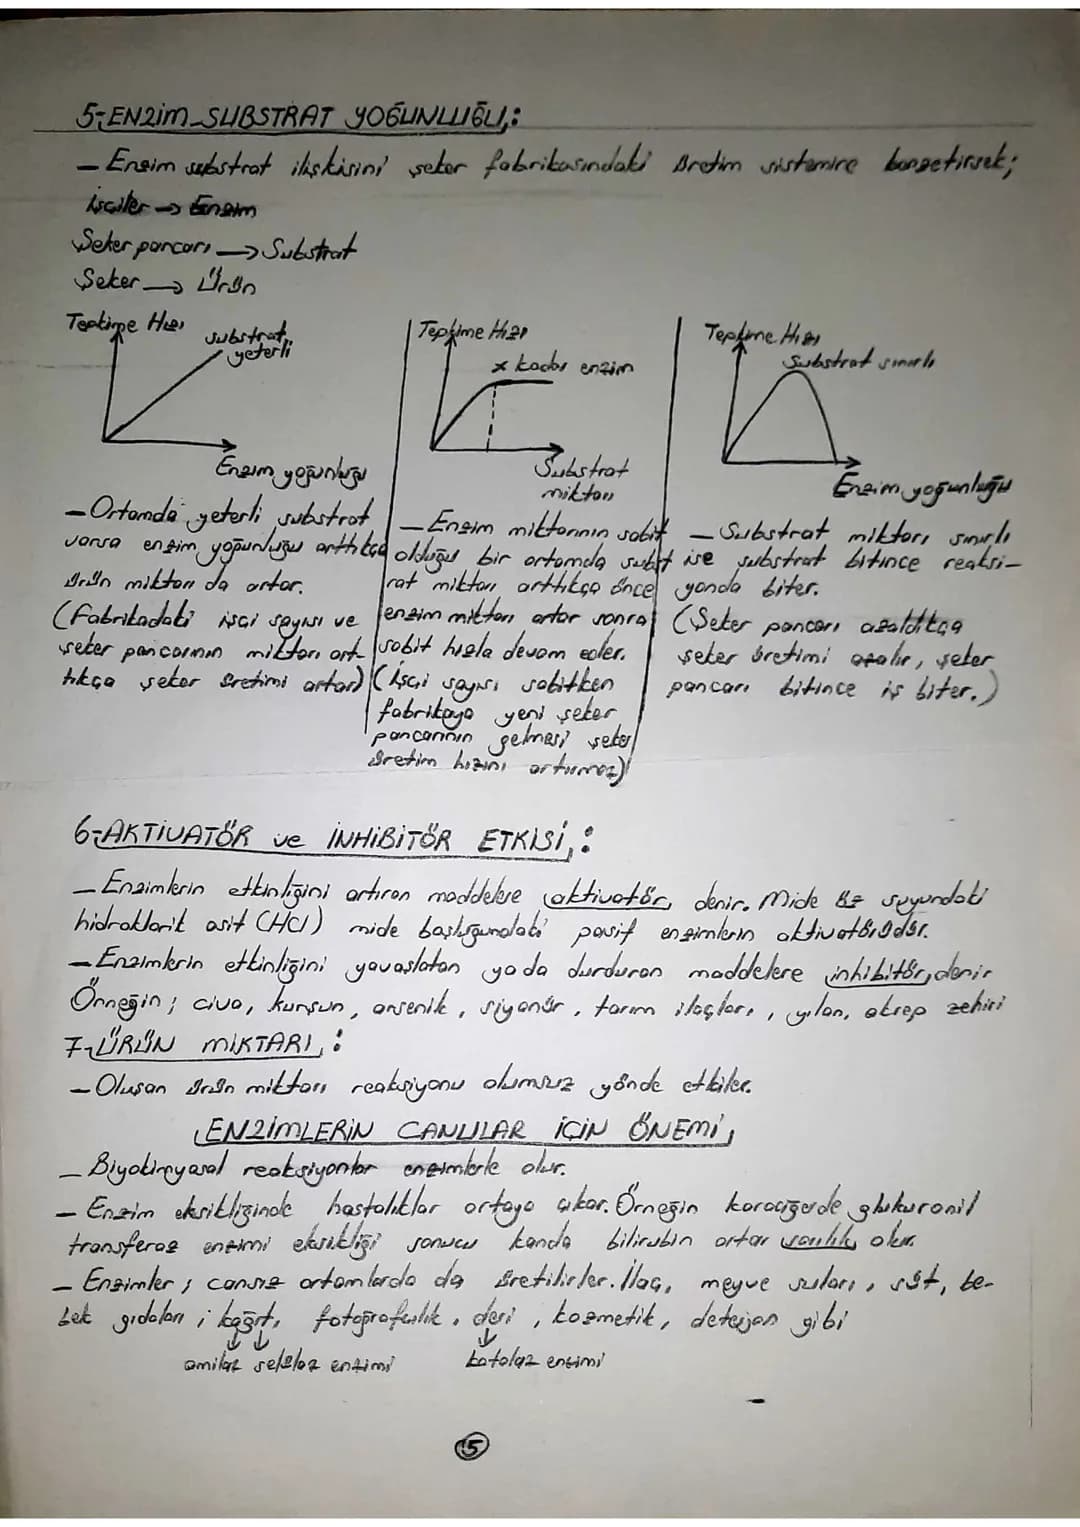 5-ENZİM-SUBSTRAT YOĞUNLUĞU:
- Enzim substrat ilişkisini şeker fabrikasındaki üretim sistemine benzetirsek;
İşçiler → Enzim
Şeker pancarı → Substrat
Şeker → Ürün
Tepkime Hızı
substrat yeterli
Enzim yoğunluğu
- Ortamda yeterli substrat
varsa enzim yoğunluğu arttıkça
ürün miktarı da artar.
(Fabrikadaki işçi sayısı ve
şeker pancarının miktarı art-
tıkça şeker üretimi artar)
Tepkime Hızı
x kadar enzim
Substrat
miktarı
- Enzim miktarının sabit
olduğu bir ortamda subst
rat miktarı arttıkça önce
enzim miktarı artar sonra
sabit hızla devam eder.
(İşçi sayısı sabitken
fabrikaya yeni şeker
pancarının gelmesi şeker
üretim hızını artırmaz)
Tepkime Hızı
Substrat sınırlı
Enzim yoğunluğu
- Substrat miktarı sınırlı
ise substrat bitince reaksi-
yonda biter.
(Şeker pancarı azaldıkça
şeker üretimi azalır, şeker
pancarı bitince iş biter.)
6-AKTİVATÖR ve İNHİBİTÖR ETKİSİ:
- Enzimlerin etkinliğini artıran maddelere aktivatör denir. Mide öz suyundaki
hidroklorik asit (HCl) mide boşluğundaki pasif enzimlerin aktivatörüdür.
- Enzimlerin etkinliğini yavaşlatan ya da durduran maddelere inhibitör denir
Örneğin; civa, kurşun, arsenik, siyanür, tarım ilaçları, yılan, akrep zehiri
7-ÜRÜN MİKTARI:
- Oluşan ürün miktarı reaksiyonu olumsuz yönde etkiler.
ENZİMLERİN CANLILAR İÇİN ÖNEMİ
- Biyokimyasal reaksiyonlar enzimlerle olur.
- Enzim eksikliğinde hastalıklar ortaya çıkar. Örneğin karaciğerde glukuronil
transferaz enzimi eksikliği sonucu kanda bilirubin artar sarılık olur.
- Enzimler; cansız ortamlarda da üretilirler. İlaç, meyve suları, süt, be-
bek gıdaları; kağıt, fotoğrafçılık, deri, kozmetik, deterjan gibi
amilaz selülaz enzimi
katalaz enzimi
15